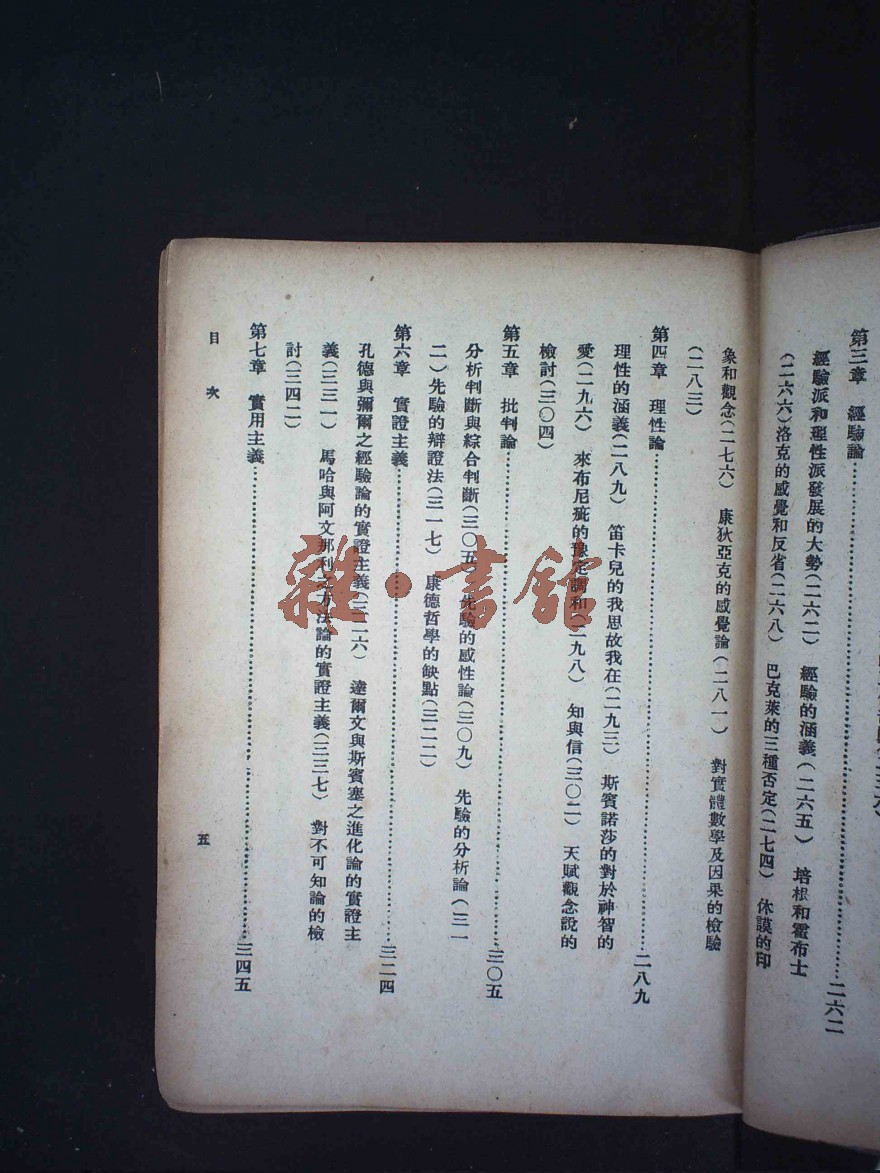 第三章　經驗論……二六二
經驗派和理性派發展的大勢（二六二）　經驗的涵義（二六五）　培根和霍布士
（二六六）洛克的感覺和反省（二六八）　巴克萊的三種否定（二七四）　休謨的印
象和觀念（二七六）　康狄亞克的感覺論（二八一）　對實體數學及因果的檢驗
（二八三）
第四章　理性論……二八九
理性的涵義（二八九）　笛卡兒的我思故我在（二九三）　斯賓諾莎的對於神智的
愛（二九六）　來布尼疵的豫定調和（二九八）　知與信（三〇二）　天賦觀念說的
檢討（三〇四）
第五章　批判論……三〇五
分析判斷與綜合判斷（三〇五）先驗的感性論（三〇九）　先驗的分析論（三一
二）先驗的辯證法（三一七）　康德哲學的缺點（三二二）
第六章　實證主義……三二四
孔德與彌爾之經驗論的實證主義（三二六）　達爾文與斯賓塞之進化論的實證主
義（三三一）　馬哈與阿文那利之方法論的實證主義（三三七）　對不可知論的檢
討（三四二）
第七章　實用主義……三四五
目次
五
雜·書館